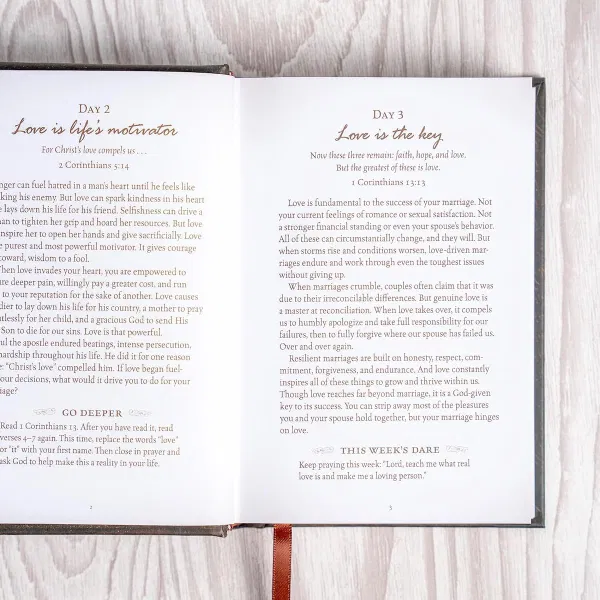 Day 2
Love is life's motivator
For Christ's love compels us . . .
2 Corinthians 5:14
nger can fuel hatred in a man's heart until he feels like
king his enemy. But love can spark kindness in his heart
e lays down his life for his friend. Selfishness can drive a
man to tighten her grip and hoard her resources. But love
inspire her to open her hands and give sacrificially. Love
e purest and most powerful motivator. It gives courage
toward, wisdom to a fool.
hen love invades your heart, you are empowered to
ure deeper pain, willingly pay a greater cost, and run
to your reputation for the sake of another. Love causes
dier to lay down his life for his country, a mother to pray
ntlessly for her child, and a gracious God to send His
Son to die for our sins. Love is that powerful.
ul the apostle endured beatings, intense persecution,
hardship throughout his life. He did it for one reason
e: "Christ's love" compelled him. If love began fuel-
your decisions, what would it drive you to do for your
iage?
GO DEEPER
Read 1 Corinthians 13. After you have read it, read
verses 4–7 again. This time, replace the words "love"
or "it" with your first name. Then close in prayer and
ask God to help make this a reality in your life.
2
Day 3
Love is the key
Now these three remain: faith, hope, and love.
But the greatest of these is love.
1 Corinthians 13:13
Love is fundamental to the success of your marriage. Not
your current feelings of romance or sexual satisfaction. Not
a stronger financial standing or even your spouse's behavior.
All of these can circumstantially change, and they will. But
when storms rise and conditions worsen, love-driven mar-
riages endure and work through even the toughest issues
without giving up.
When marriages crumble, couples often claim that it was
due to their irreconcilable differences. But genuine love is
a master at reconciliation. When love takes over, it compels
us to humbly apologize and take full responsibility for our
failures, then to fully forgive where our spouse has failed us.
Over and over again.
Resilient marriages are built on honesty, respect, com-
mitment, forgiveness, and endurance. And love constantly
inspires all of these things to grow and thrive within us.
Though love reaches far beyond marriage, it is a God-given
key to its success. You can strip away most of the pleasures
you and your spouse hold together, but your marriage hinges
on love.
THIS WEEK'S DARE
Keep praying this week: "Lord, teach me what real
love is and make me a loving person."
3